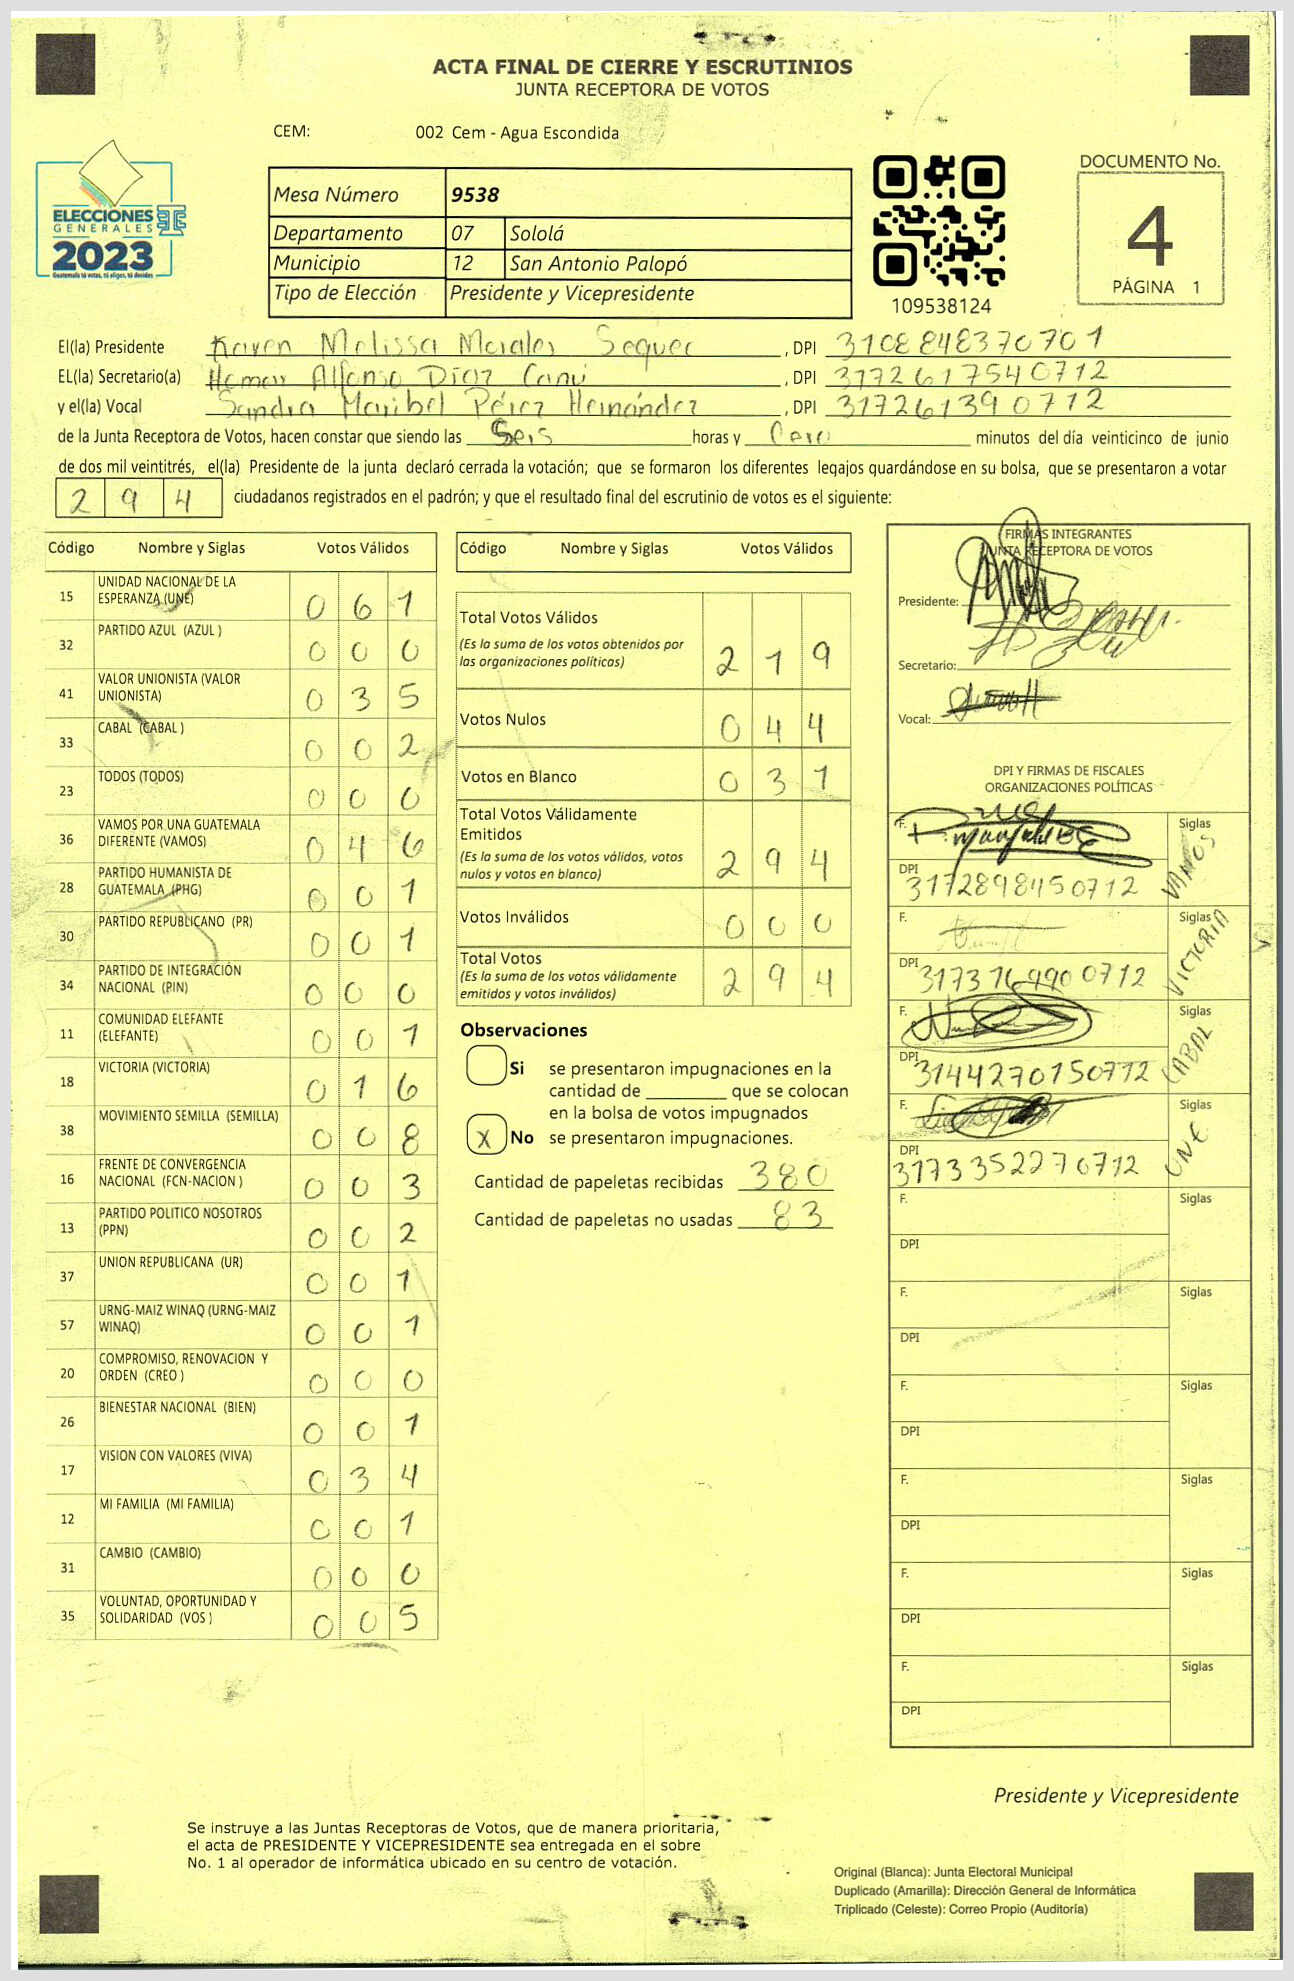 ACTA FINAL DE CIERRE Y ESCRUTINIOS
JUNTA RECEPTORA DE VOTOS
CEM: 002 Cem - Agua Escondida
ELECCIONES
GENERALES
2023
Guatemala tú votas, tú eliges, tú decides
Mesa Número 9538
Departamento 07 Sololá
Municipio 12 San Antonio Palopó
Tipo de Elección Presidente y Vicepresidente
109538124
DOCUMENTO No.
4
PÁGINA 1
El(la) Presidente Karen Melissa Morales Sequec , DPI 3108848370701
EL(la) Secretario(a) Díaz , DPI 3172617540712
y el(la) Vocal Sandra Maribel Pérez Hernández , DPI 317261390712
de la Junta Receptora de Votos, hacen constar que siendo las Seis horas y Cero minutos del día veinticinco de junio
de dos mil veintitrés, el(la) Presidente de la junta declaró cerrada la votación; que se formaron los diferentes legajos guardándose en su bolsa, que se presentaron a votar
2 9 4 ciudadanos registrados en el padrón; y que el resultado final del escrutinio de votos es el siguiente:
Código Nombre y Siglas Votos Válidos
15 UNIDAD NACIONAL DE LA ESPERANZA (UNE) 0 6 1
32 PARTIDO AZUL (AZUL ) 0 0 0
41 VALOR UNIONISTA (VALOR UNIONISTA) 0 3 5
33 CABAL (CABAL ) 0 0 2
23 TODOS (TODOS) 0 0 0
36 VAMOS POR UNA GUATEMALA DIFERENTE (VAMOS) 0 4 6
28 PARTIDO HUMANISTA DE GUATEMALA (PHG) 0 0 1
30 PARTIDO REPUBLICANO (PR) 0 0 1
34 PARTIDO DE INTEGRACIÓN NACIONAL (PIN) 0 0 0
11 COMUNIDAD ELEFANTE (ELEFANTE) 0 0 1
18 VICTORIA (VICTORIA) 0 1 6
38 MOVIMIENTO SEMILLA (SEMILLA) 0 0 8
16 FRENTE DE CONVERGENCIA NACIONAL (FCN-NACION ) 0 0 3
13 PARTIDO POLITICO NOSOTROS (PPN) 0 0 2
37 UNION REPUBLICANA (UR) 0 0 1
57 URNG-MAIZ WINAQ (URNG-MAIZ WINAQ) 0 0 1
20 COMPROMISO, RENOVACION Y ORDEN (CREO ) 0 0 0
26 BIENESTAR NACIONAL (BIEN) 0 0 1
17 VISION CON VALORES (VIVA) 0 3 4
12 MI FAMILIA (MI FAMILIA) 0 0 1
31 CAMBIO (CAMBIO) 0 0 0
35 VOLUNTAD, OPORTUNIDAD Y SOLIDARIDAD (VOS ) 0 0 5
Código Nombre y Siglas Votos Válidos
Total Votos Válidos
(Es la suma de los votos obtenidos por
las organizaciones políticas) 2 1 9
Votos Nulos 0 4 4
Votos en Blanco 0 3 1
Total Votos Válidamente
Emitidos
(Es la suma de los votos válidos, votos
nulos y votos en blanco) 2 9 4
Votos Inválidos 0 0 0
Total Votos
(Es la suma de los votos válidamente
emitidos y votos inválidos) 2 9 4
Observaciones
Si se presentaron impugnaciones en la
cantidad de ________ que se colocan
en la bolsa de votos impugnados
X No se presentaron impugnaciones.
Cantidad de papeletas recibidas 380
Cantidad de papeletas no usadas 83
FIRMAS INTEGRANTES
JUNTA RECEPTORA DE VOTOS
Presidente:
Secretario:
Vocal:
DPI Y FIRMAS DE FISCALES
ORGANIZACIONES POLÍTICAS
F. Siglas VAMOS
DPI 3172898450712
F. Siglas VICTORIA
DPI
F. Siglas CABAL
DPI 3144270150712
F. Siglas UNE
DPI 3173352270712
F. Siglas
DPI
F. Siglas
DPI
F. Siglas
DPI
F. Siglas
DPI
F. Siglas
DPI
F. Siglas
DPI
Presidente y Vicepresidente
Se instruye a las Juntas Receptoras de Votos, que de manera prioritaria,
el acta de PRESIDENTE Y VICEPRESIDENTE sea entregada en el sobre
No. 1 al operador de informática ubicado en su centro de votación.
Original (Blanca): Junta Electoral Municipal
Duplicado (Amarilla): Dirección General de Informática
Triplicado (Celeste): Correo Propio (Auditoría)